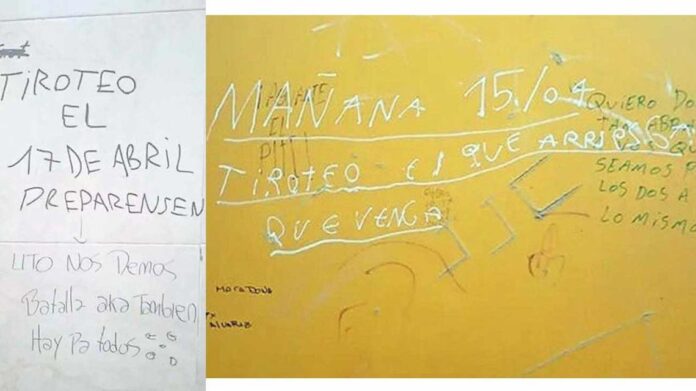 TIROTEO
EL
17 DE ABRIL
PREPARENSEN
LITO NOS Demos
Batalla aka Tambien
Hay Pa todos
MAÑANA 15/04
TIROTEO EL QUE ARRIESGA
QUE VENGA
QUIERO
SEAMOS
LOS DOS A
LO MISMO
MARADONA
ALVAREZ